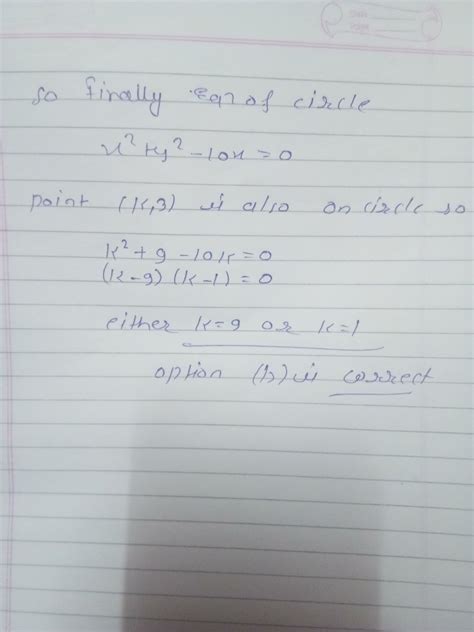 so finally eqn of circle
x² + y² - 10x = 0
point (k,3) is also on circle so
k² + 9 - 10k = 0
(k-9) (k-1) = 0
either k=9 or k=1
option (b) is correct